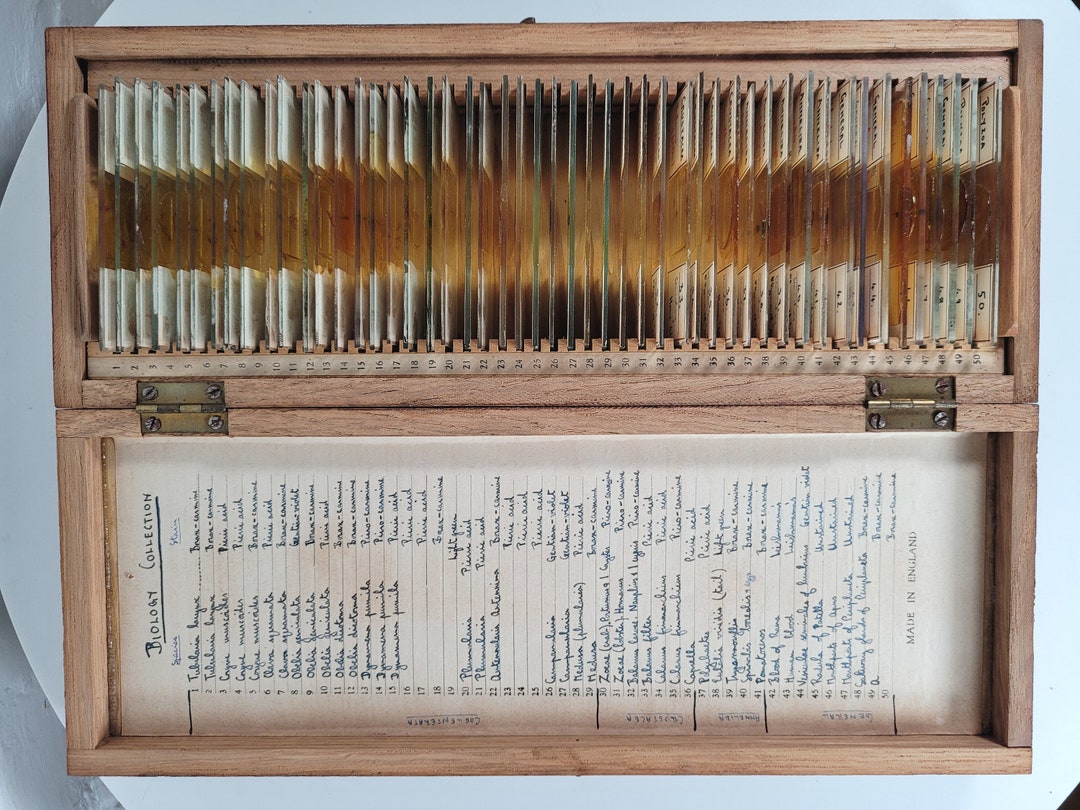 BIOLOGY COLLECTION
Species Stain
1 Tubularia larynx Borax-carmine
2 Tubularia larynx Borax-carmine
3 Coryne muscoides Picric acid
4 Coryne muscoides Picric acid
5 Coryne muscoides Borax-carmine
6 Clava squamata Picric acid
7 Clava squamata Borax-carmine
8 Obelia geniculata Gentian-violet
9 Obelia geniculata Borax-carmine
10 Obelia geniculata Picric acid
11 Obelia Borax-carmine
12 Obelia Borax-carmine
13 Dynamena pumila Picro-carmine
14 Dynamena pumila Picro-carmine
15 Dynamena pumila Picric acid
16 Picric acid
17 Picric acid
18 Borax-carmine
19 light green
20 Plumularia Picric acid
21 Plumularia Picric acid
22 Antennularia antennina Borax-carmine
23 Picric acid
24 Picric acid
25 Picric acid
26 Campanularia Gentian-violet
27 Campanularia Gentian-violet
28 Medusa Picric acid
29 Medusa Borax-carmine
30 Zoaea (crab) Portunus & 1 Picro-carmine
31 Zoaea (lobster) Homarus Picro-carmine
32 Balanus larvae. Nauplius & 1 cypris Picro-carmine
33 Balanus Picric acid
34 Calanus finmarchicus Picric acid
35 Calanus finmarchicus Picro-carmine
36 Caprella Picric acid
37 Polychaeta Picric acid
38 viridis (tail) light green
39 Borax-carmine
40 Spirorbis borealis & eggs Borax-carmine
41 Pomatoceros Borax-carmine
42 Blood of Rana
43 Human blood
44 Vesiculae seminales of lumbricus Gentian violet
45 Radula of Patella Unstained
46 Mouthparts of Unstained
47 Mouthparts of Periplaneta Unstained
48 Salivary glands of Periplaneta Borax-carmine
49 Borax-carmine
50 Borax-carmine
COELENTERATA
CRUSTACEA
ANNELIDA
GENERAL
MADE IN ENGLAND
1 2 3 4 5 6 7 8 9 10 11 12 13 14 15 16 17 18 19 20 21 22 23 24 25 26 27 28 29 30 31 32 33 34 35 36 37 38 39 40 41 42 43 44 45 46 47 48 49 50
POLYZOA
50